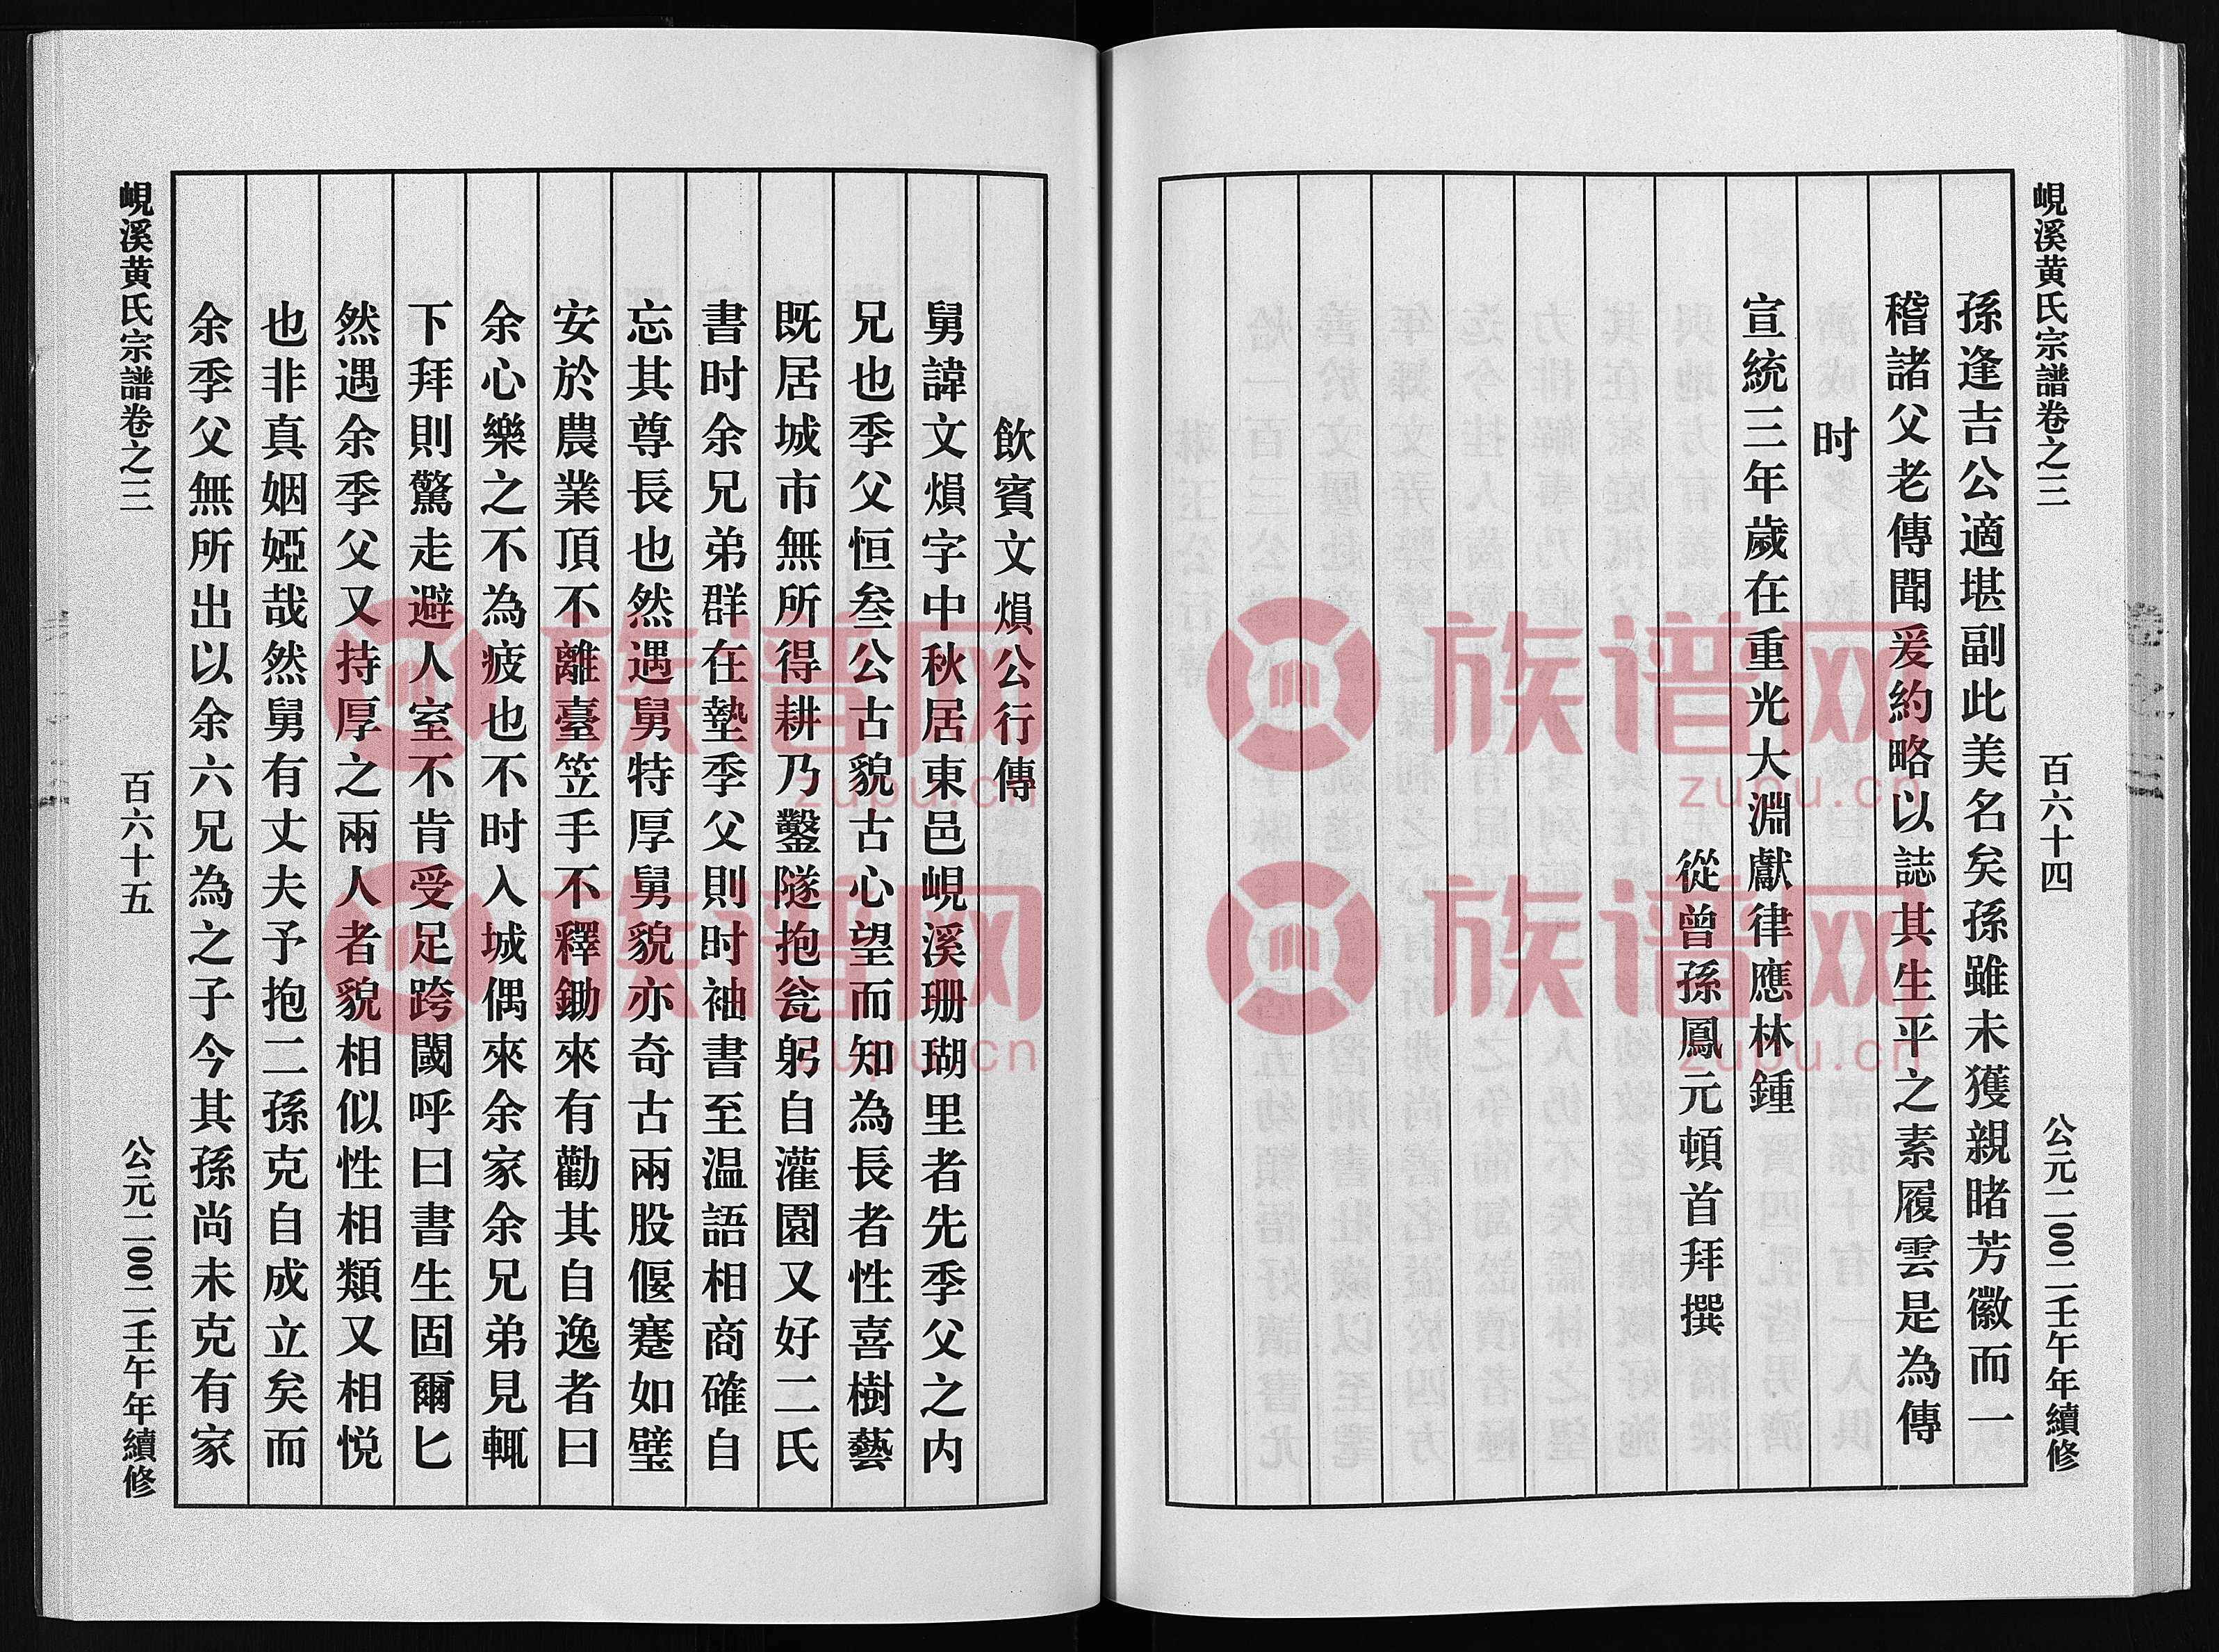 峴溪黄氏宗譜卷之三
百六十四
公元二00二壬午年續修
孫逢吉公適堪副此美名矣孫雖未獲親睹芳徽而一
稽諸父老傳聞爰約略以誌其生平之素履雲是為傳
时
宣統三年歲在重光大淵獻律應林鍾
從曾孫鳳元頓首拜撰
飲賓文熉公行傳
舅諱文熉字中秋居東邑峴溪珊瑚里者先季父之内
兄也季父恒叁公古貌古心望而知為長者性喜樹藝
既居城市無所得耕乃鑿隧抱瓮躬自灌園又好二氏
書时余兄弟群在塾季父則时袖書至温語相商確自
忘其尊長也然遇舅特厚舅貌亦奇古兩股偃蹇如璧
安於農業頂不離臺笠手不釋鋤來有勸其自逸者曰
余心樂之不為疲也不时入城偶來余家余兄弟見輒
下拜則驚走避人室不肯受足跨閾呼曰書生固爾匕
然遇余季父又持厚之兩人者貌相似性相類又相悦
也非真姻婭哉然舅有丈夫予抱二孫克自成立矣而
余季父無所出以余六兄為之子今其孫尚未克有家
峴溪黄氏宗譜卷之三
百六十五
公元二00二壬午年續修
族谱网
zupu.cn
族谱网
zupu.cn
族谱网
zupu.cn
族谱网
zupu.cn